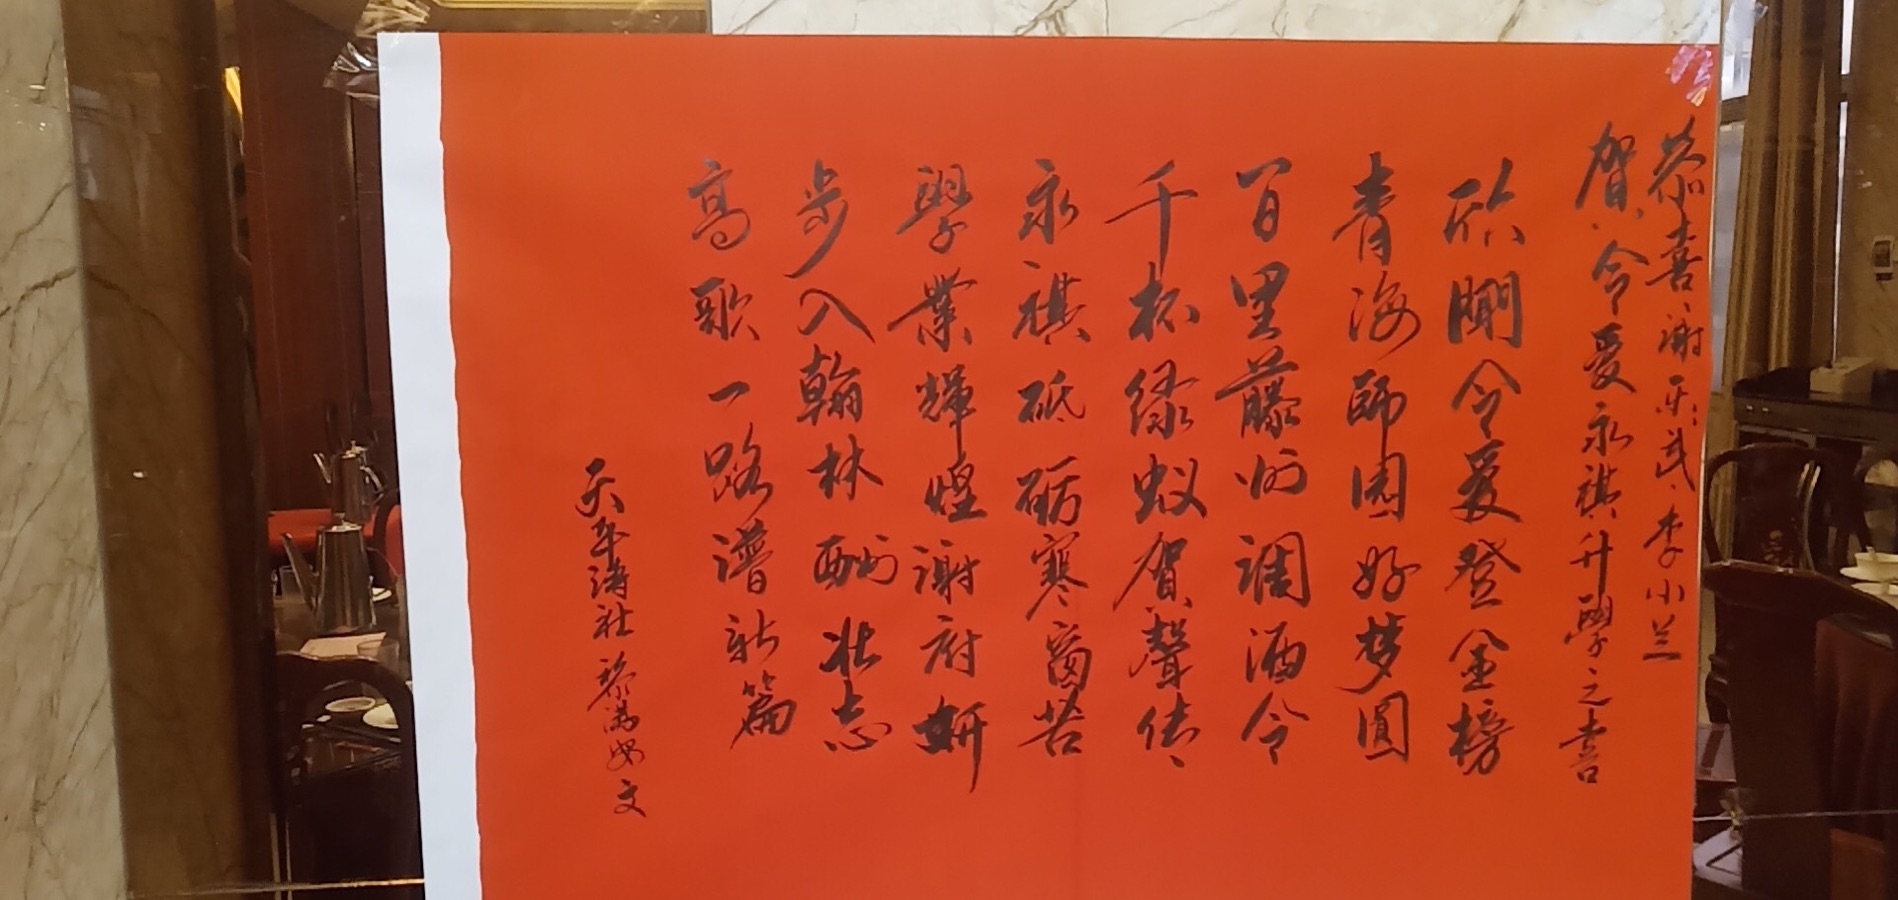 恭喜谢乐武、李小兰
贺令爱永祺升學之喜
欣闻令爱登金榜
青海師园好梦圓
百里藤州调酒令
千杯绿蚁贺聲传
永祺砥砺寒窗苦
學業輝煌谢府妍
步入翰林酬壮志
高歌一路谱新篇
天平诗社 黎满安文